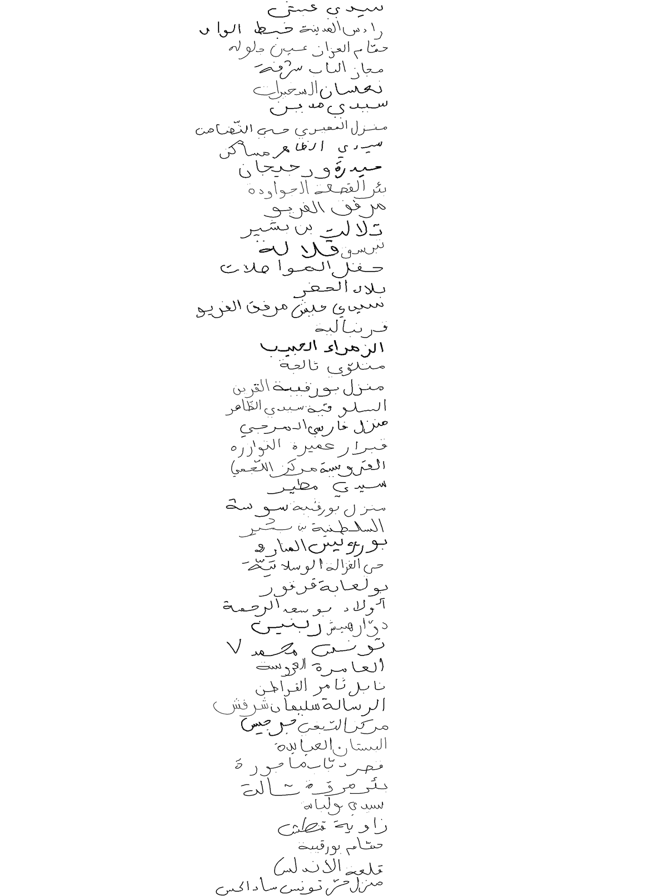 سيدي عيش
رادس المدينة خبط الواد
حمّام الغزاز عين جلولة
مجاز الباب شرفة
نحسان السخيرات
سيدي مدين
منزل النصيري حي التّضامن
سيدي الظاهر مساكن
حيدرة ورجيجان
بئر القصعة الجواودة
مرفق الغربو
تلالت بن بشير
تبرسق قلالة
حفل المواصلات
بلاد الحضر
سيدي حبش مرفق الغريو
قرنبالية
الزهراء الحبيب
متلوّي تالحة
منزل بورقيبة القرين
السلوقية سيدي الظاهر
منزل فارسي المرجي
قبرار عميرة التوازره
العروسة مركز اللّحمي
سيدي مطير
منزل بورقيبة سوسة
السلطنية بشير
بورويس العبارة
حي الغزالة الوسلاتيّة
بولعابة قرقور
أولاد بوسعد الرحمة
دوّار هيشر زينين
تونس محمد 7
العامرة العروسة
نابل ثامر الفراطن
الرسالة سليمان شرفش
مركز الشعبي جرجيس
البستان العبابدة
قصر دبّاب ماجورة
بئر مروة شالة
سيدي بولبابة
زاوية قطش
حمّام بورقيبة
قلعة الاندلس
منزل حرّ تونس سادالحس